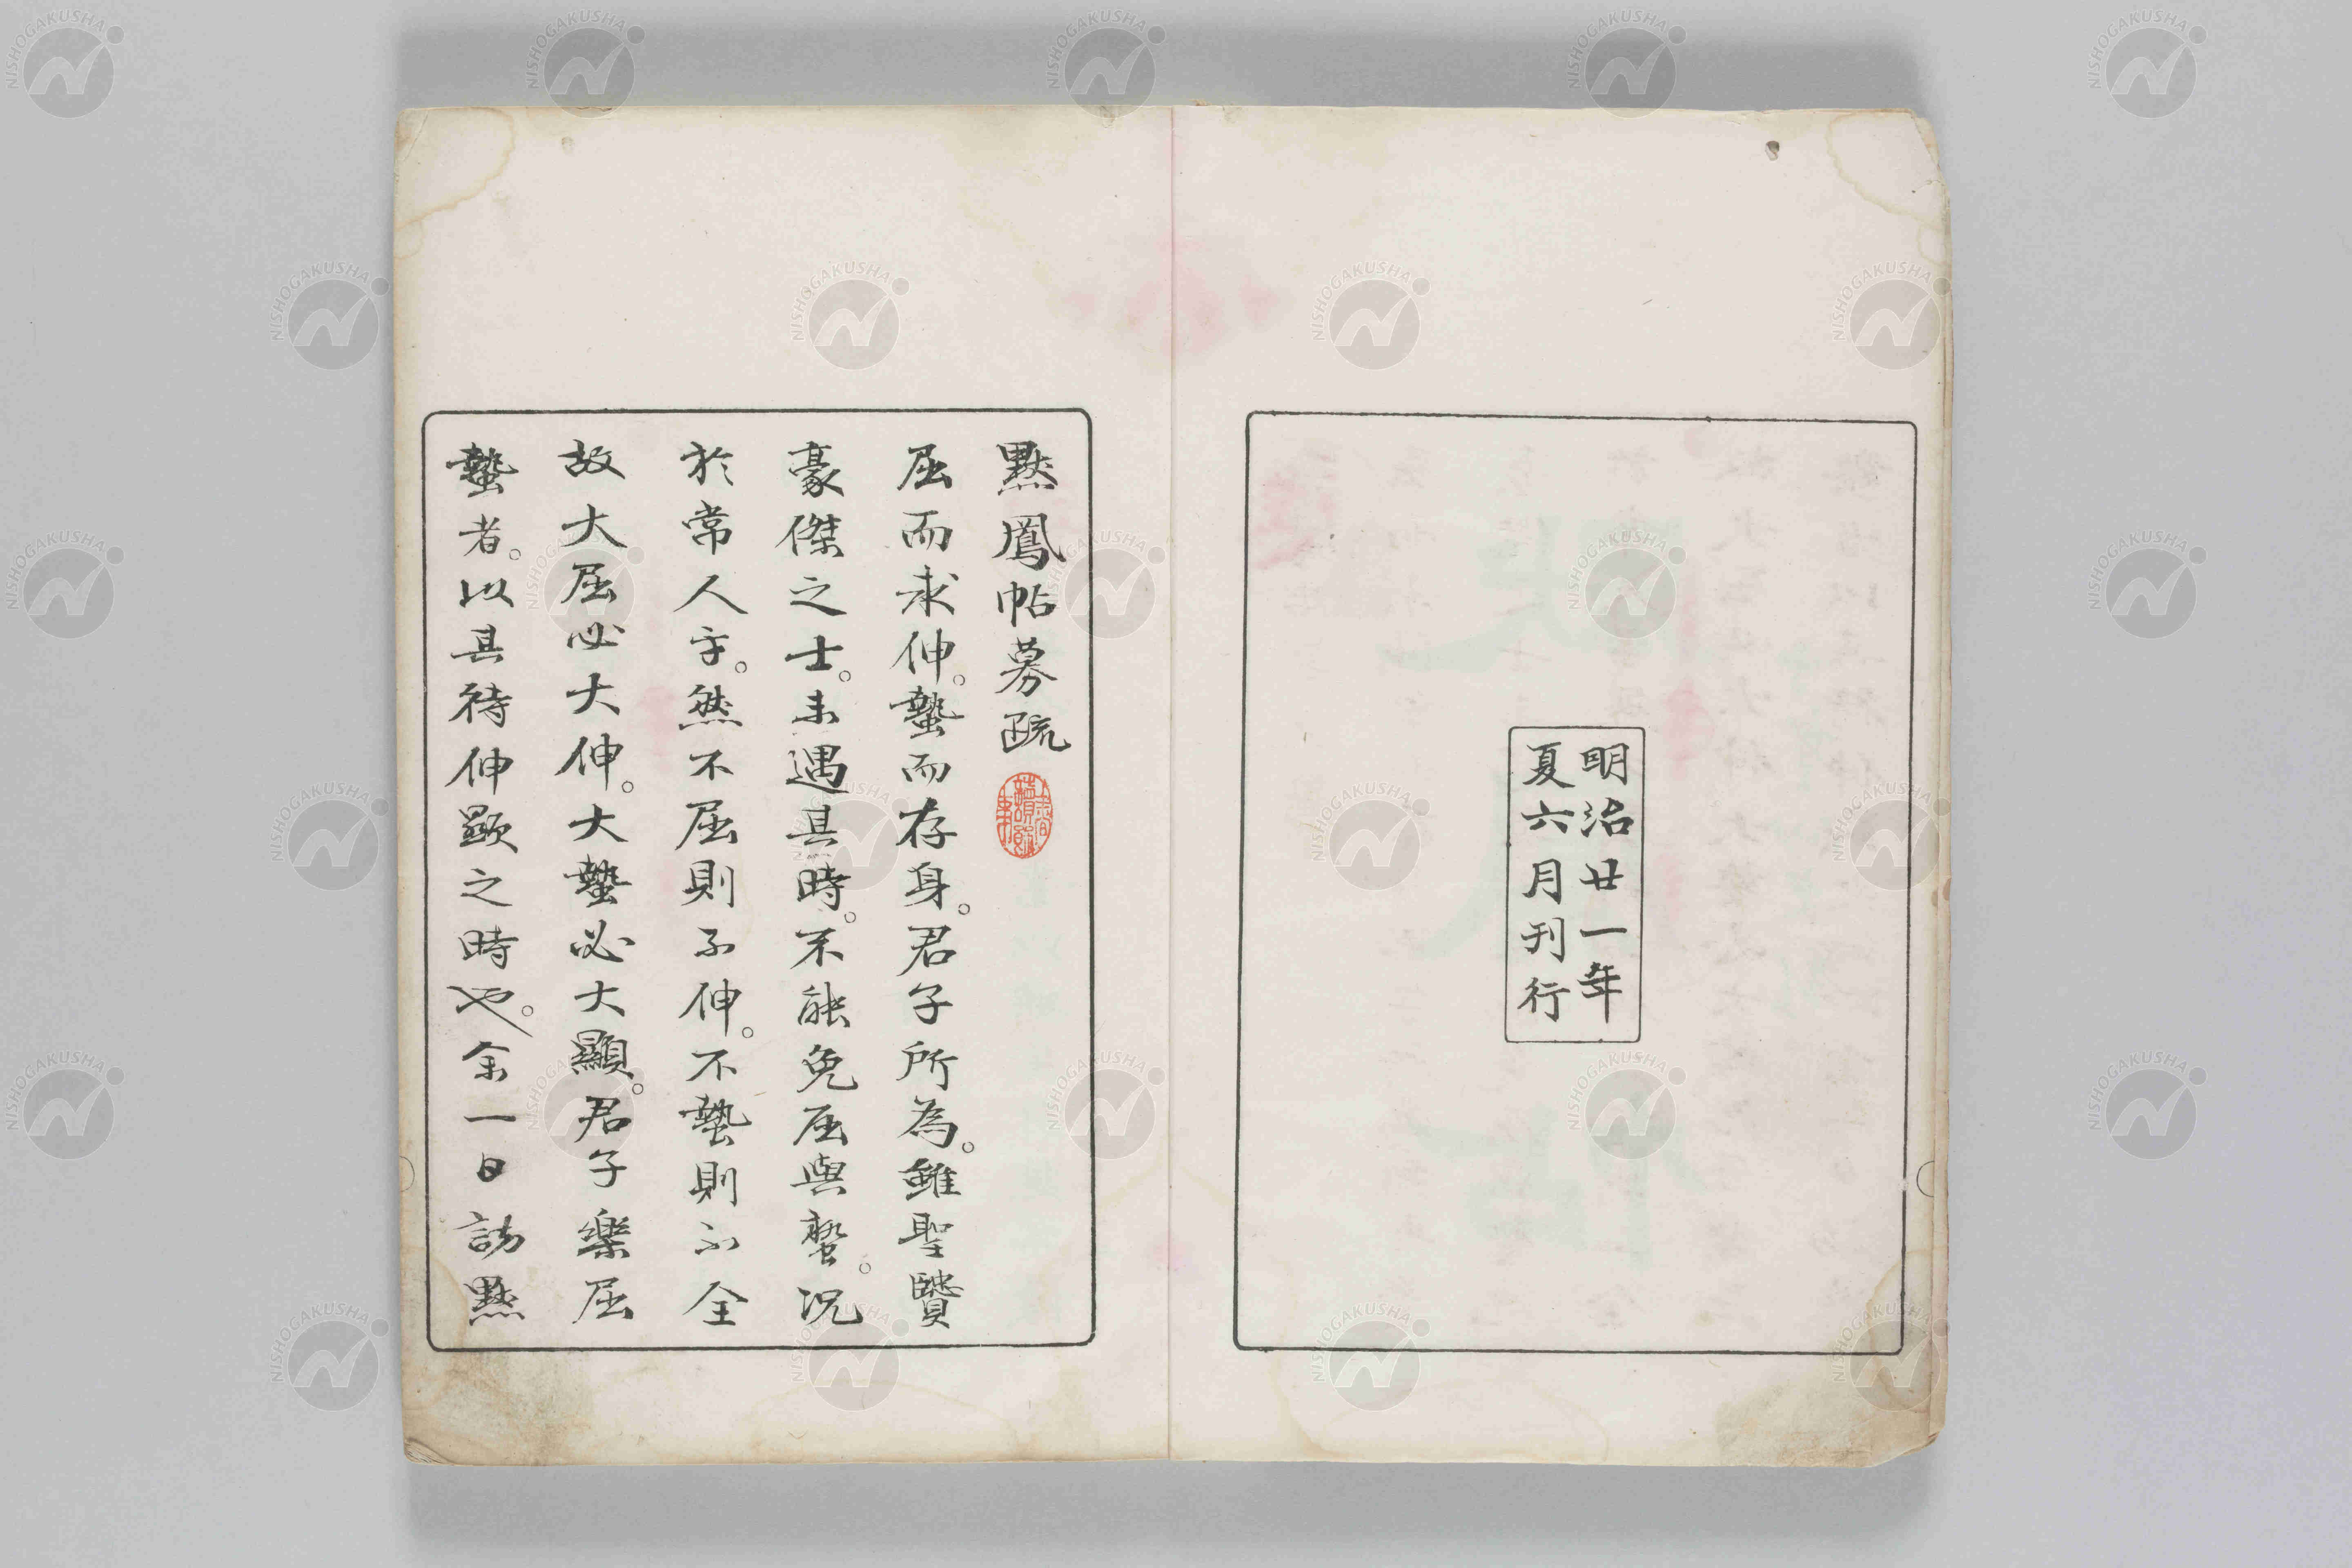 明治廿一年
夏六月刊行
黙鳳帖募疏
屈而求伸。蟄而存身。君子所為。雖聖賢
豪傑之士。未遇其時。不能免屈與蟄。況
於常人乎。然不屈則不伸。不蟄則不全
故大屈必大伸。大蟄必大顯。君子樂屈
蟄者。以其待伸顕之時也。余一日訪黙
NISHOGAKUSHA